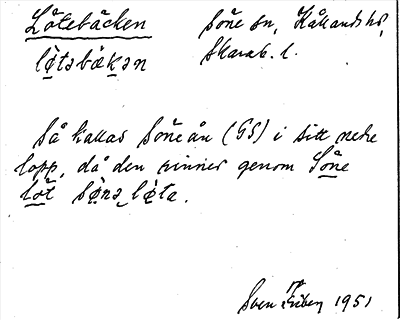 Lötebäcken Söne sn, Kållands hd,
lø̀təbækən Skarab. l.
Så kallas Söneån (GS) i sitt nedre
lopp, då den rinner genom Söne
löt sønə lø̀ta.
Sven 1951